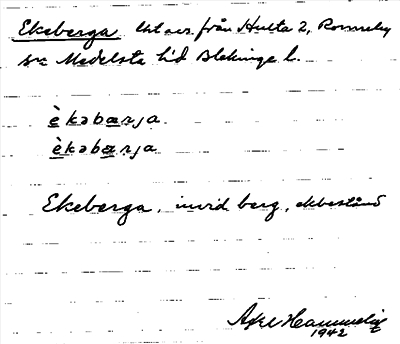 Ekeberga lht avs. från Hulta 2, Ronneby
sn Medelsta hd Blekinge l.
èkəbærja.
èkəbærja
Ekeberga, invid berg, ekbestånd
Axel
1942